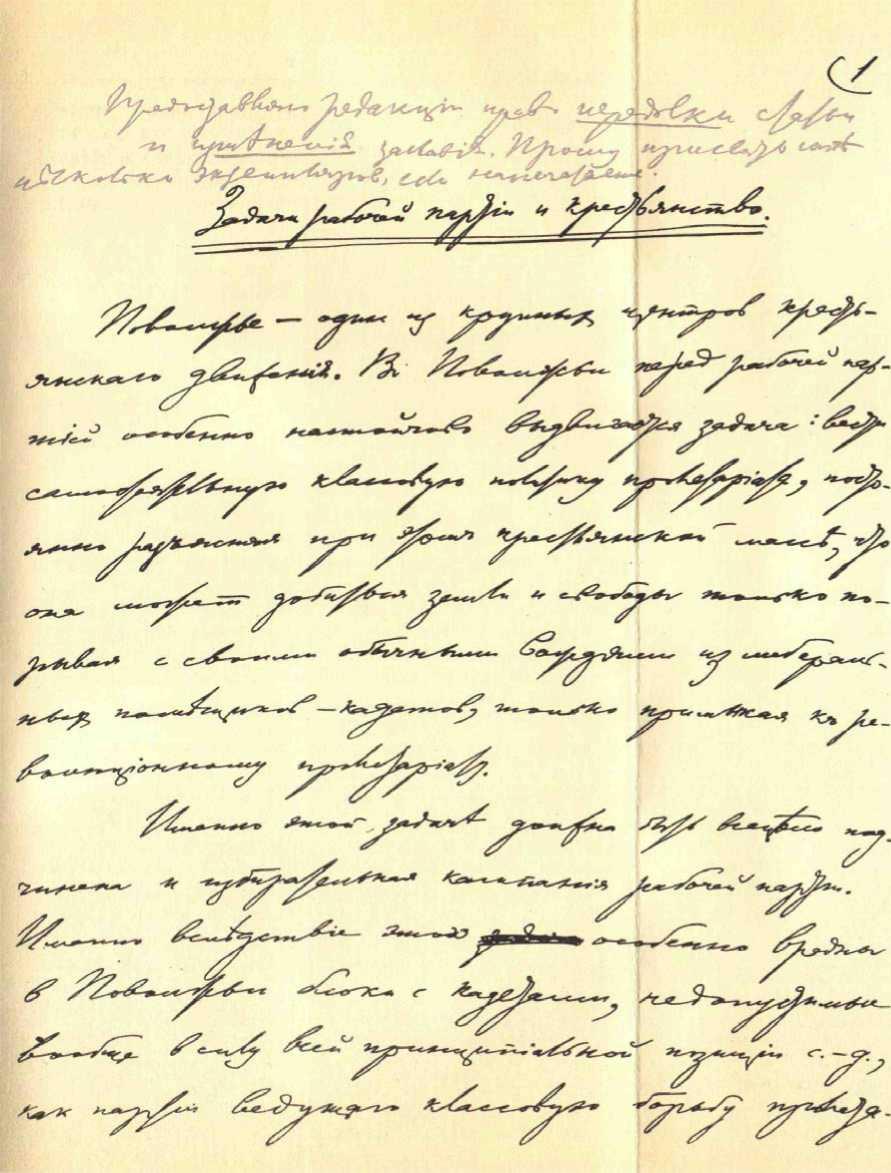 (1
Предоставляю редакции право переделки статьи
и изменений заглавия. Прошу прислать мнѣ
нѣсколько экземпляров, если напечатаете.
Задачи рабочей партіи и крестьянство.
Поволжье — один из крупных центров кресть-
янскаго движенія. В Поволжьи перед рабочей пар-
тіей особенно настойчиво выдвигается задача: вести
самостоятельную классовую политику пролетаріата, посто-
янно разъясняя при этом крестьянской массѣ, что
она может добиться земли и свободы только по-
рывая с своими обычными вождями из либераль-
ных помѣщиков — кадетов, только примыкая къ ре-
волюціонному пролетаріату.
Именно этой задачѣ должна быть всецѣло под-
чинена и избирательная кампанія рабочей партіи.
Именно вслѣдствіе этого особенно вредны
в Поволжьи блоки с кадетами, недопустимые
вообще в силу всей принципіальной позиціи с.-д.,
как партіи ведущей классовую борьбу пролета-